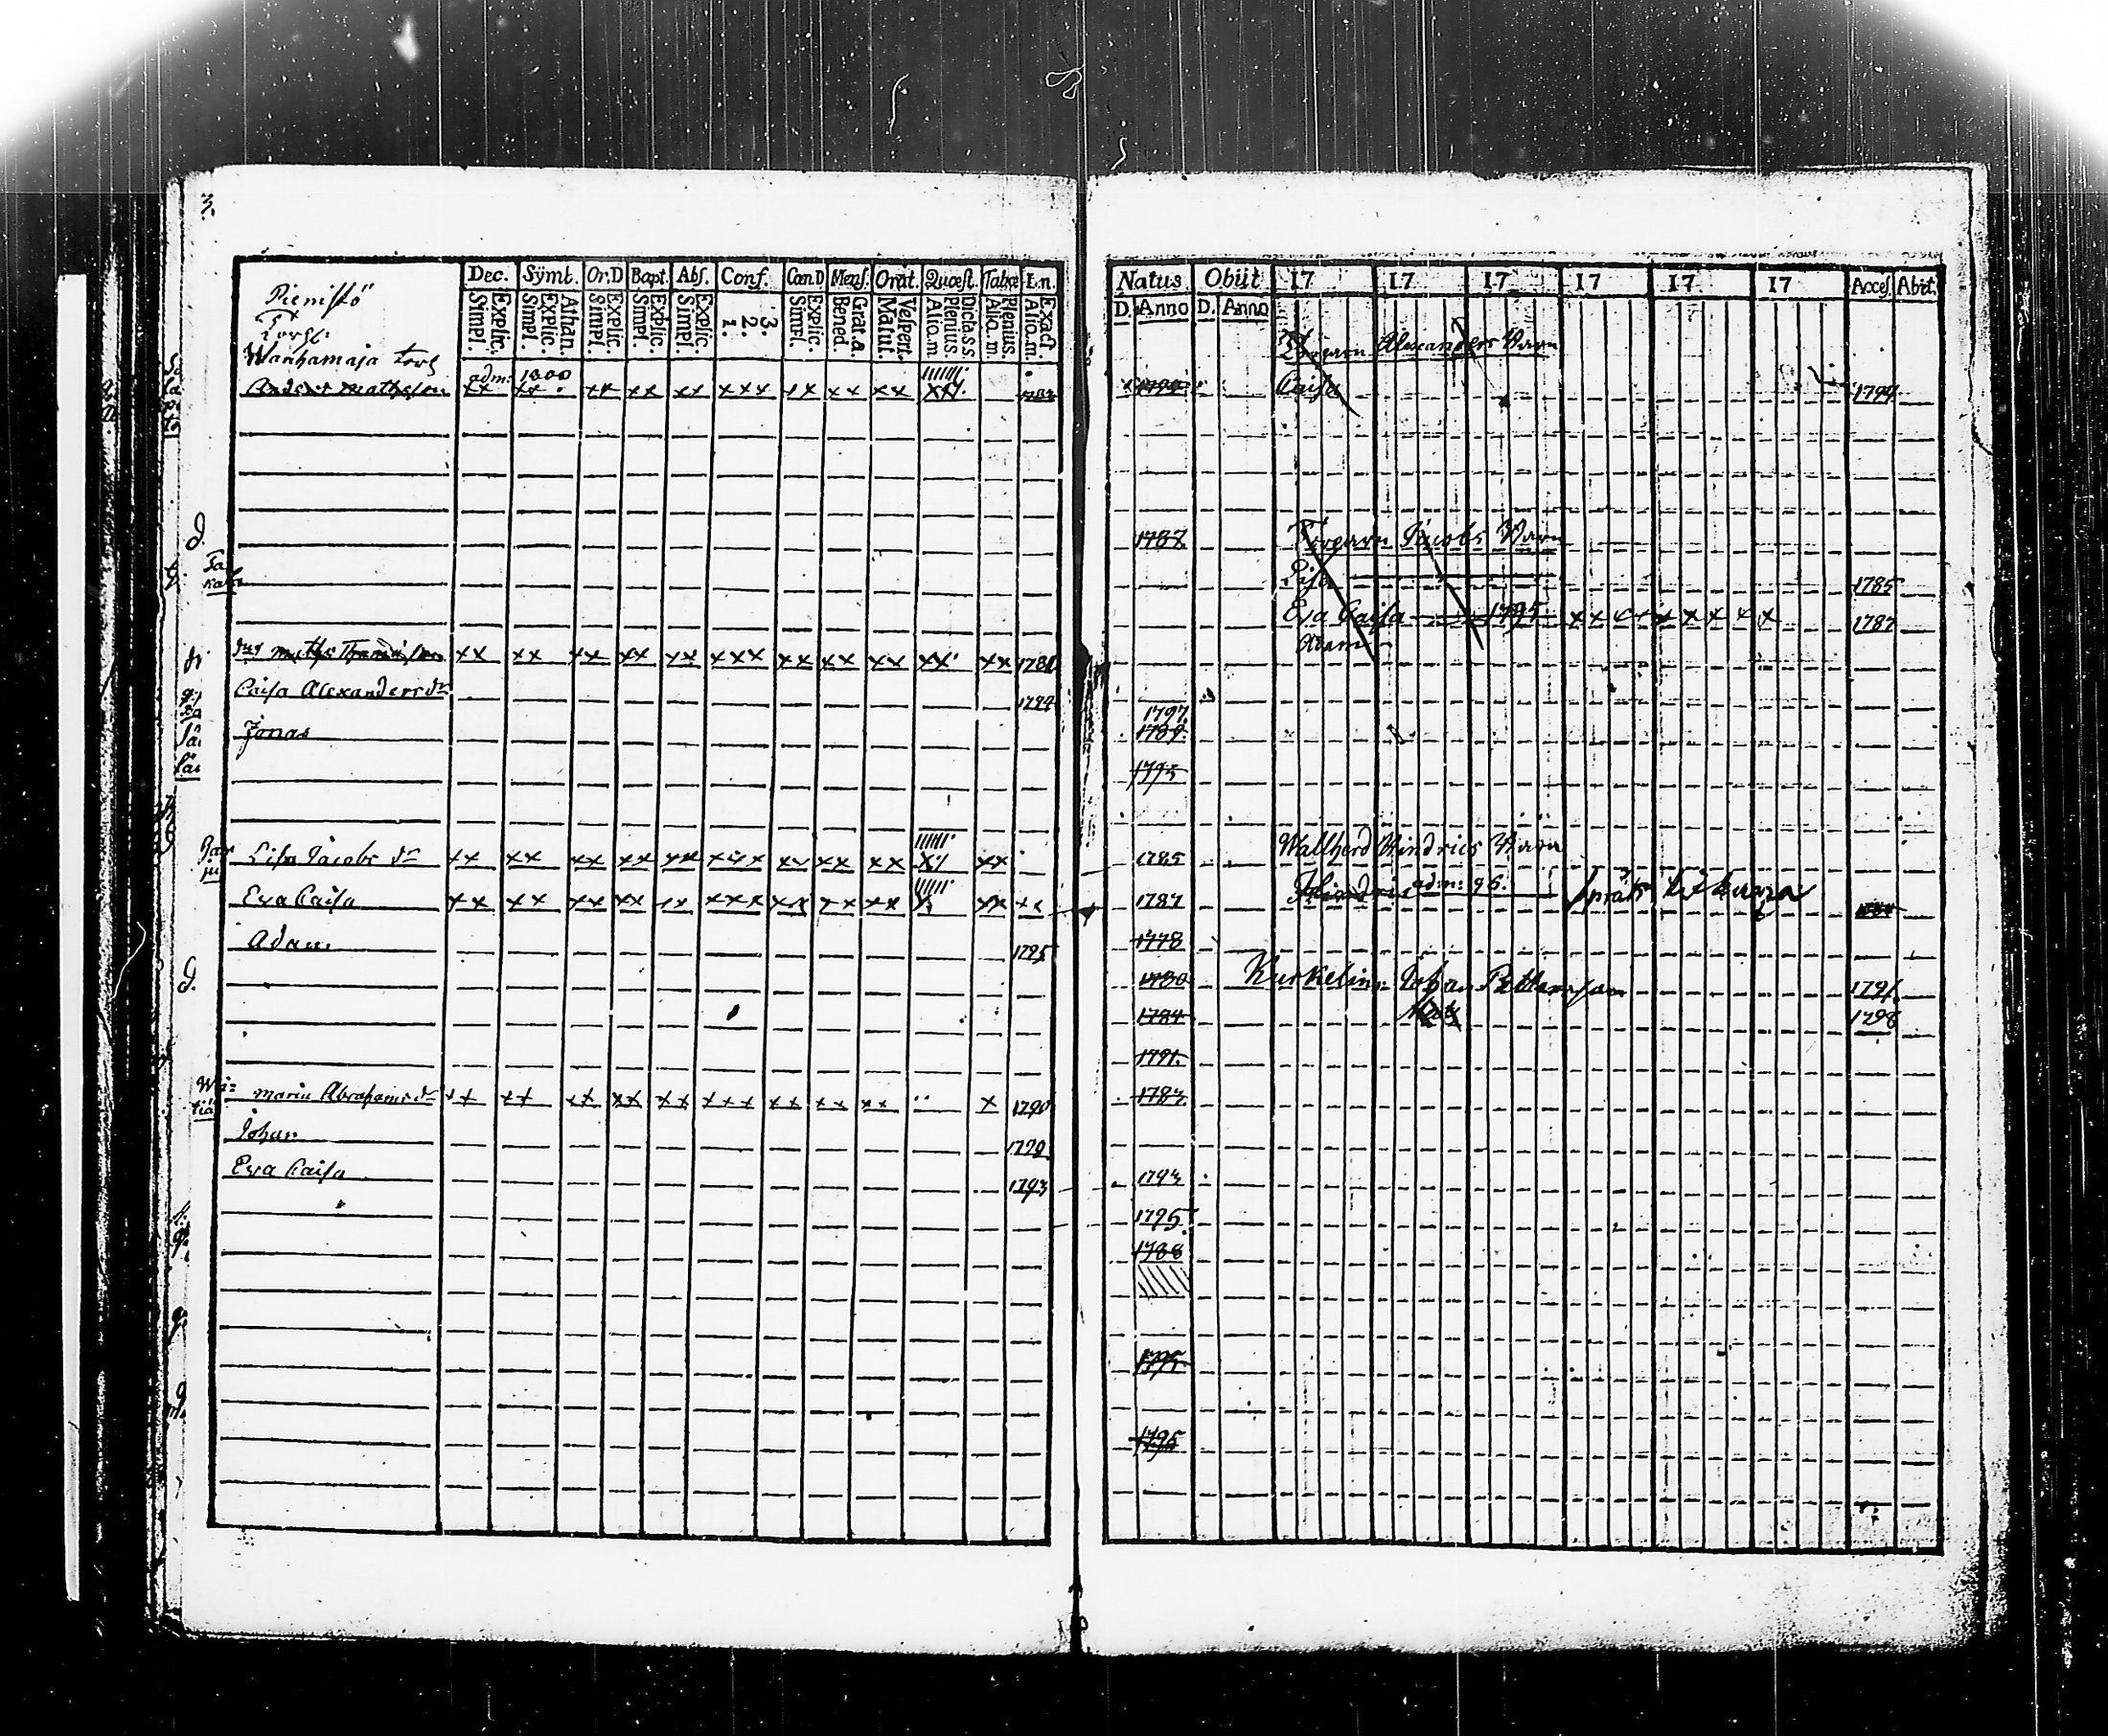 3.
Dec. Sÿmb. Or.D Bapt. Abſ. Conf. Can.D Menſ. Orat. Quæſt. Tabæ L.n.
Simpl. Explic. Simpl. Explic. Athan. Simpl. Explic. Simpl. Explic. Simpl. Explic. 1. 2. 3. Simpl. Explic. Bened. Grat.a. Matut. Veſpert. Alio.m. Plenius. Dicta.s.s Alio.m. Plenius. Alio.m. Exact.
Pieniſtö
Torp.
Wanhamaja torp
adm: 1800
Anders Mathsson xx xx xx xx xx xxx xx xx xx
Maths xx xx xx xx xx xxx xx xx xx xx xx 1781
Caiſa Alexanders dr 1794
Jonas
Liſa Jacobs dr xx xx xx xx xx xxx xx xx xx xx
Eva Caiſa xx xx xx xx xx xxx xx xx xx xx xx
Adam 1795
Maria Abrahams dr xx xx xx xx xx xxx xx xx xx x 1790
Johan 1779
Eva Caiſa 1793
Natus Obiit 17 17 17 17 17 17 Acceſ. Abit.
D. Anno D. Anno
Torparn Alexanders Barn
Caiſa 1794
1787 Torparn Jacobs Barn
Liſa 1785
Eva Caiſa 1795 x x x x x x x x x 1787
Adam
1797
1789
1795
1785 Wallherd Hindrics Barn
1787 Hindric adm: 96.
1778
1780 Johan Petterſson 1791
1784 1798
1791
1783
1793
1795
1788
1795
1795